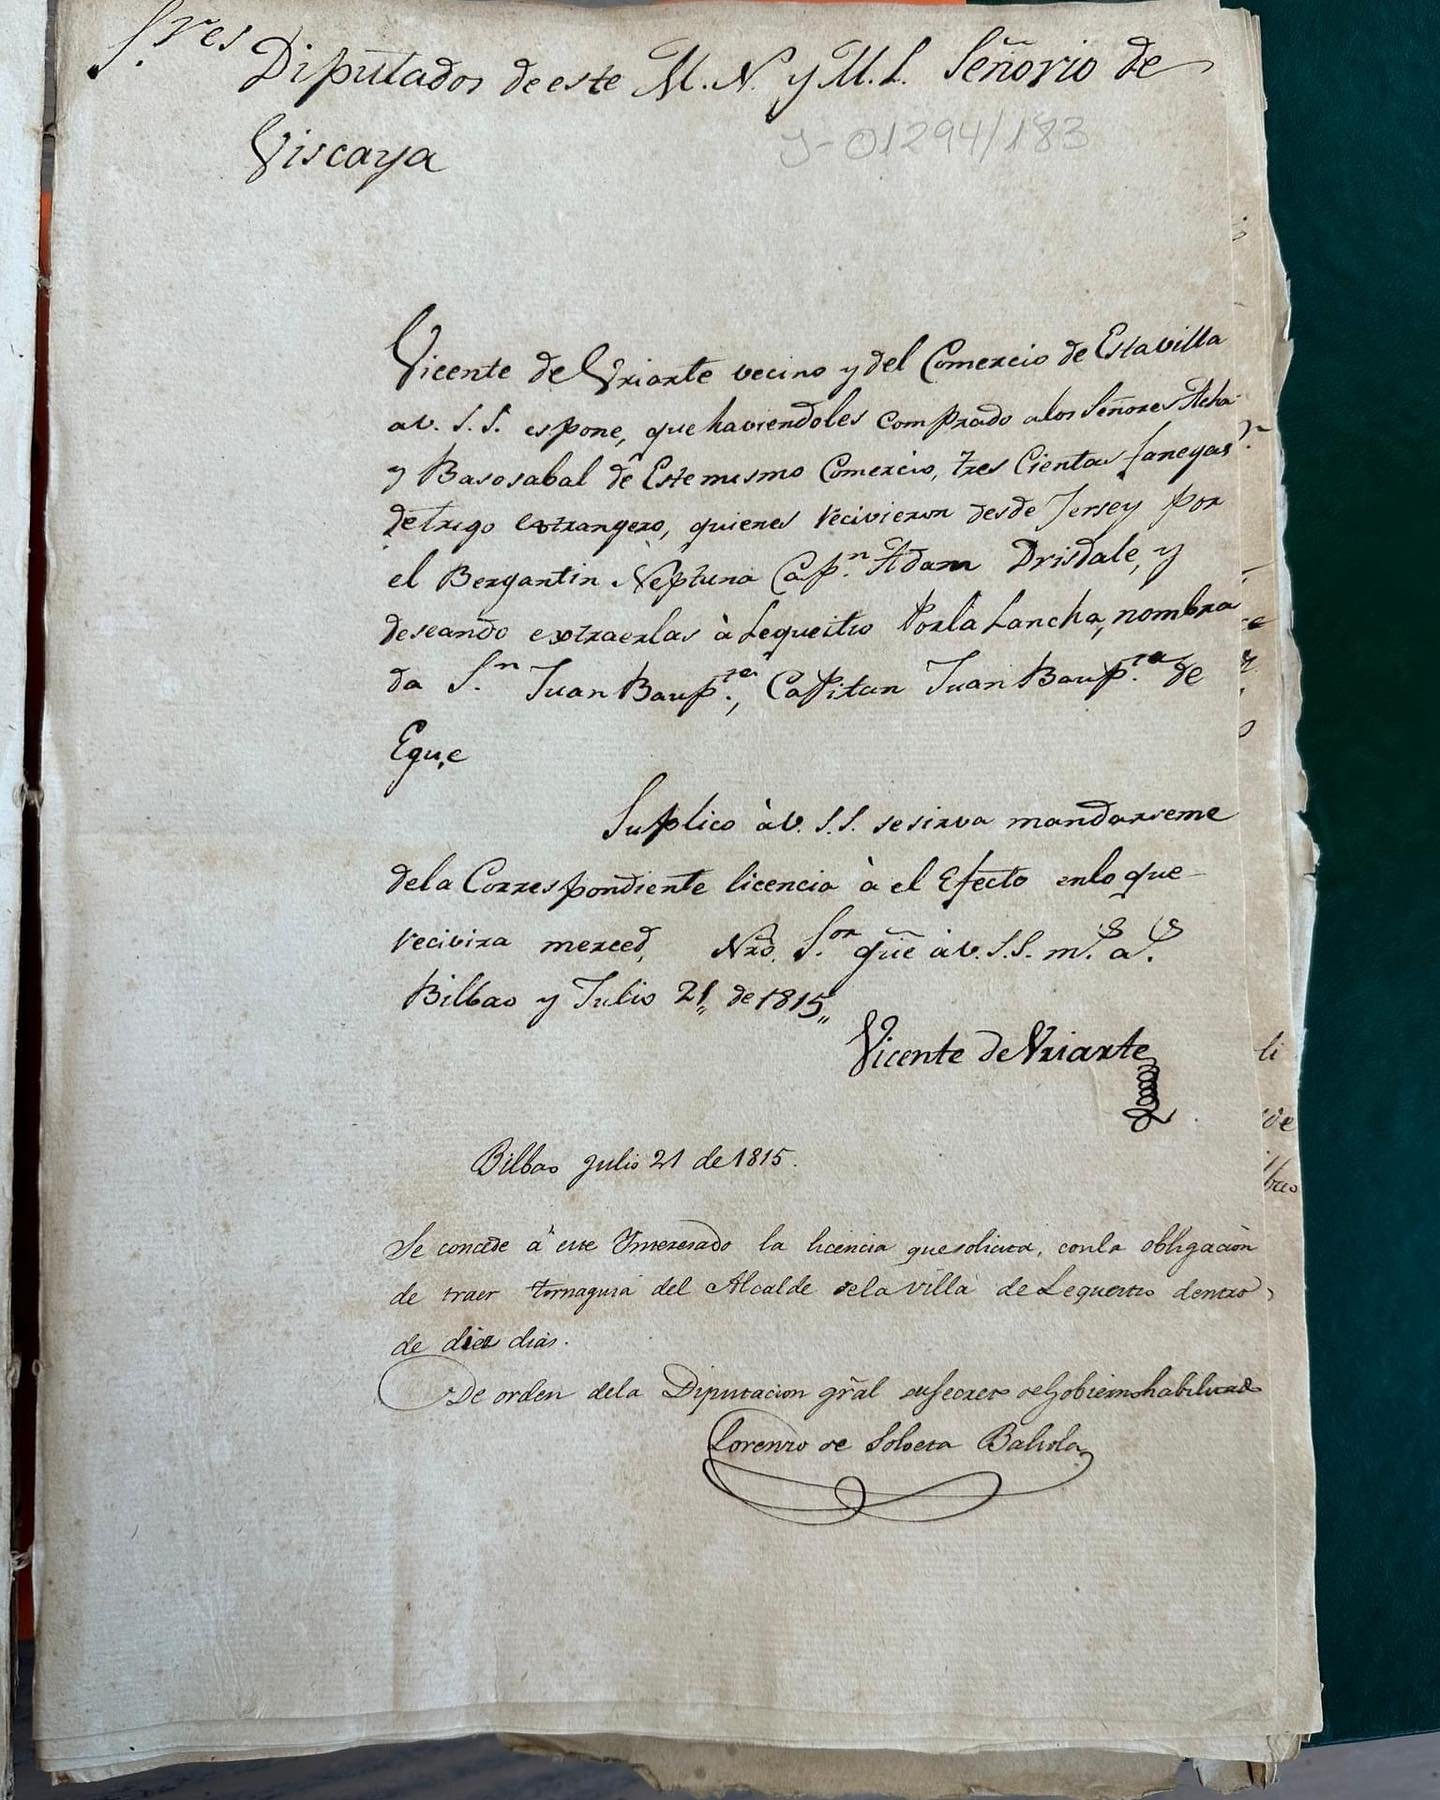 S.res Diputados de este M. N. y M. L. Señorio de
Viscaya
J-01294/183
Vicente de Uriarte vecino y del Comercio de Estavilla
a V. S. S. espone, que haviendoles comprado alos Señores Acha
y Basosabal de Este mismo Comercio, tres Cientas fanegas
detrigo extrangero, quienes recivieron desde Jersey por
el Bergantin Neptuno Cap.n Adam Drisdale, y
deseando extraerlas à Lequeitio Porla Lancha, nombra
da S.n Juan Baup.ta, Capitan Juan Baup.ta de
Egu,e
Suplico à V. S. S. sesirva mandarseme
dela Correspondiente licencia à el Efecto enlo que
recivira merced, Nro. S.or güe à V. S. S. m.s a.s
Bilbao y Julio 21,, de 1815,,
Vicente de Uriarte
Bilbao Julio 21 de 1815.
Se concede à este Interesado la licencia quesolicita, conla obligacion
de traer tornaguia del Alcalde dela villa de Lequeitio dentro
de diez dias.
De orden dela Diputacion gral suSecreto deGobiernohabilitado
Lorenzo de Soloeta